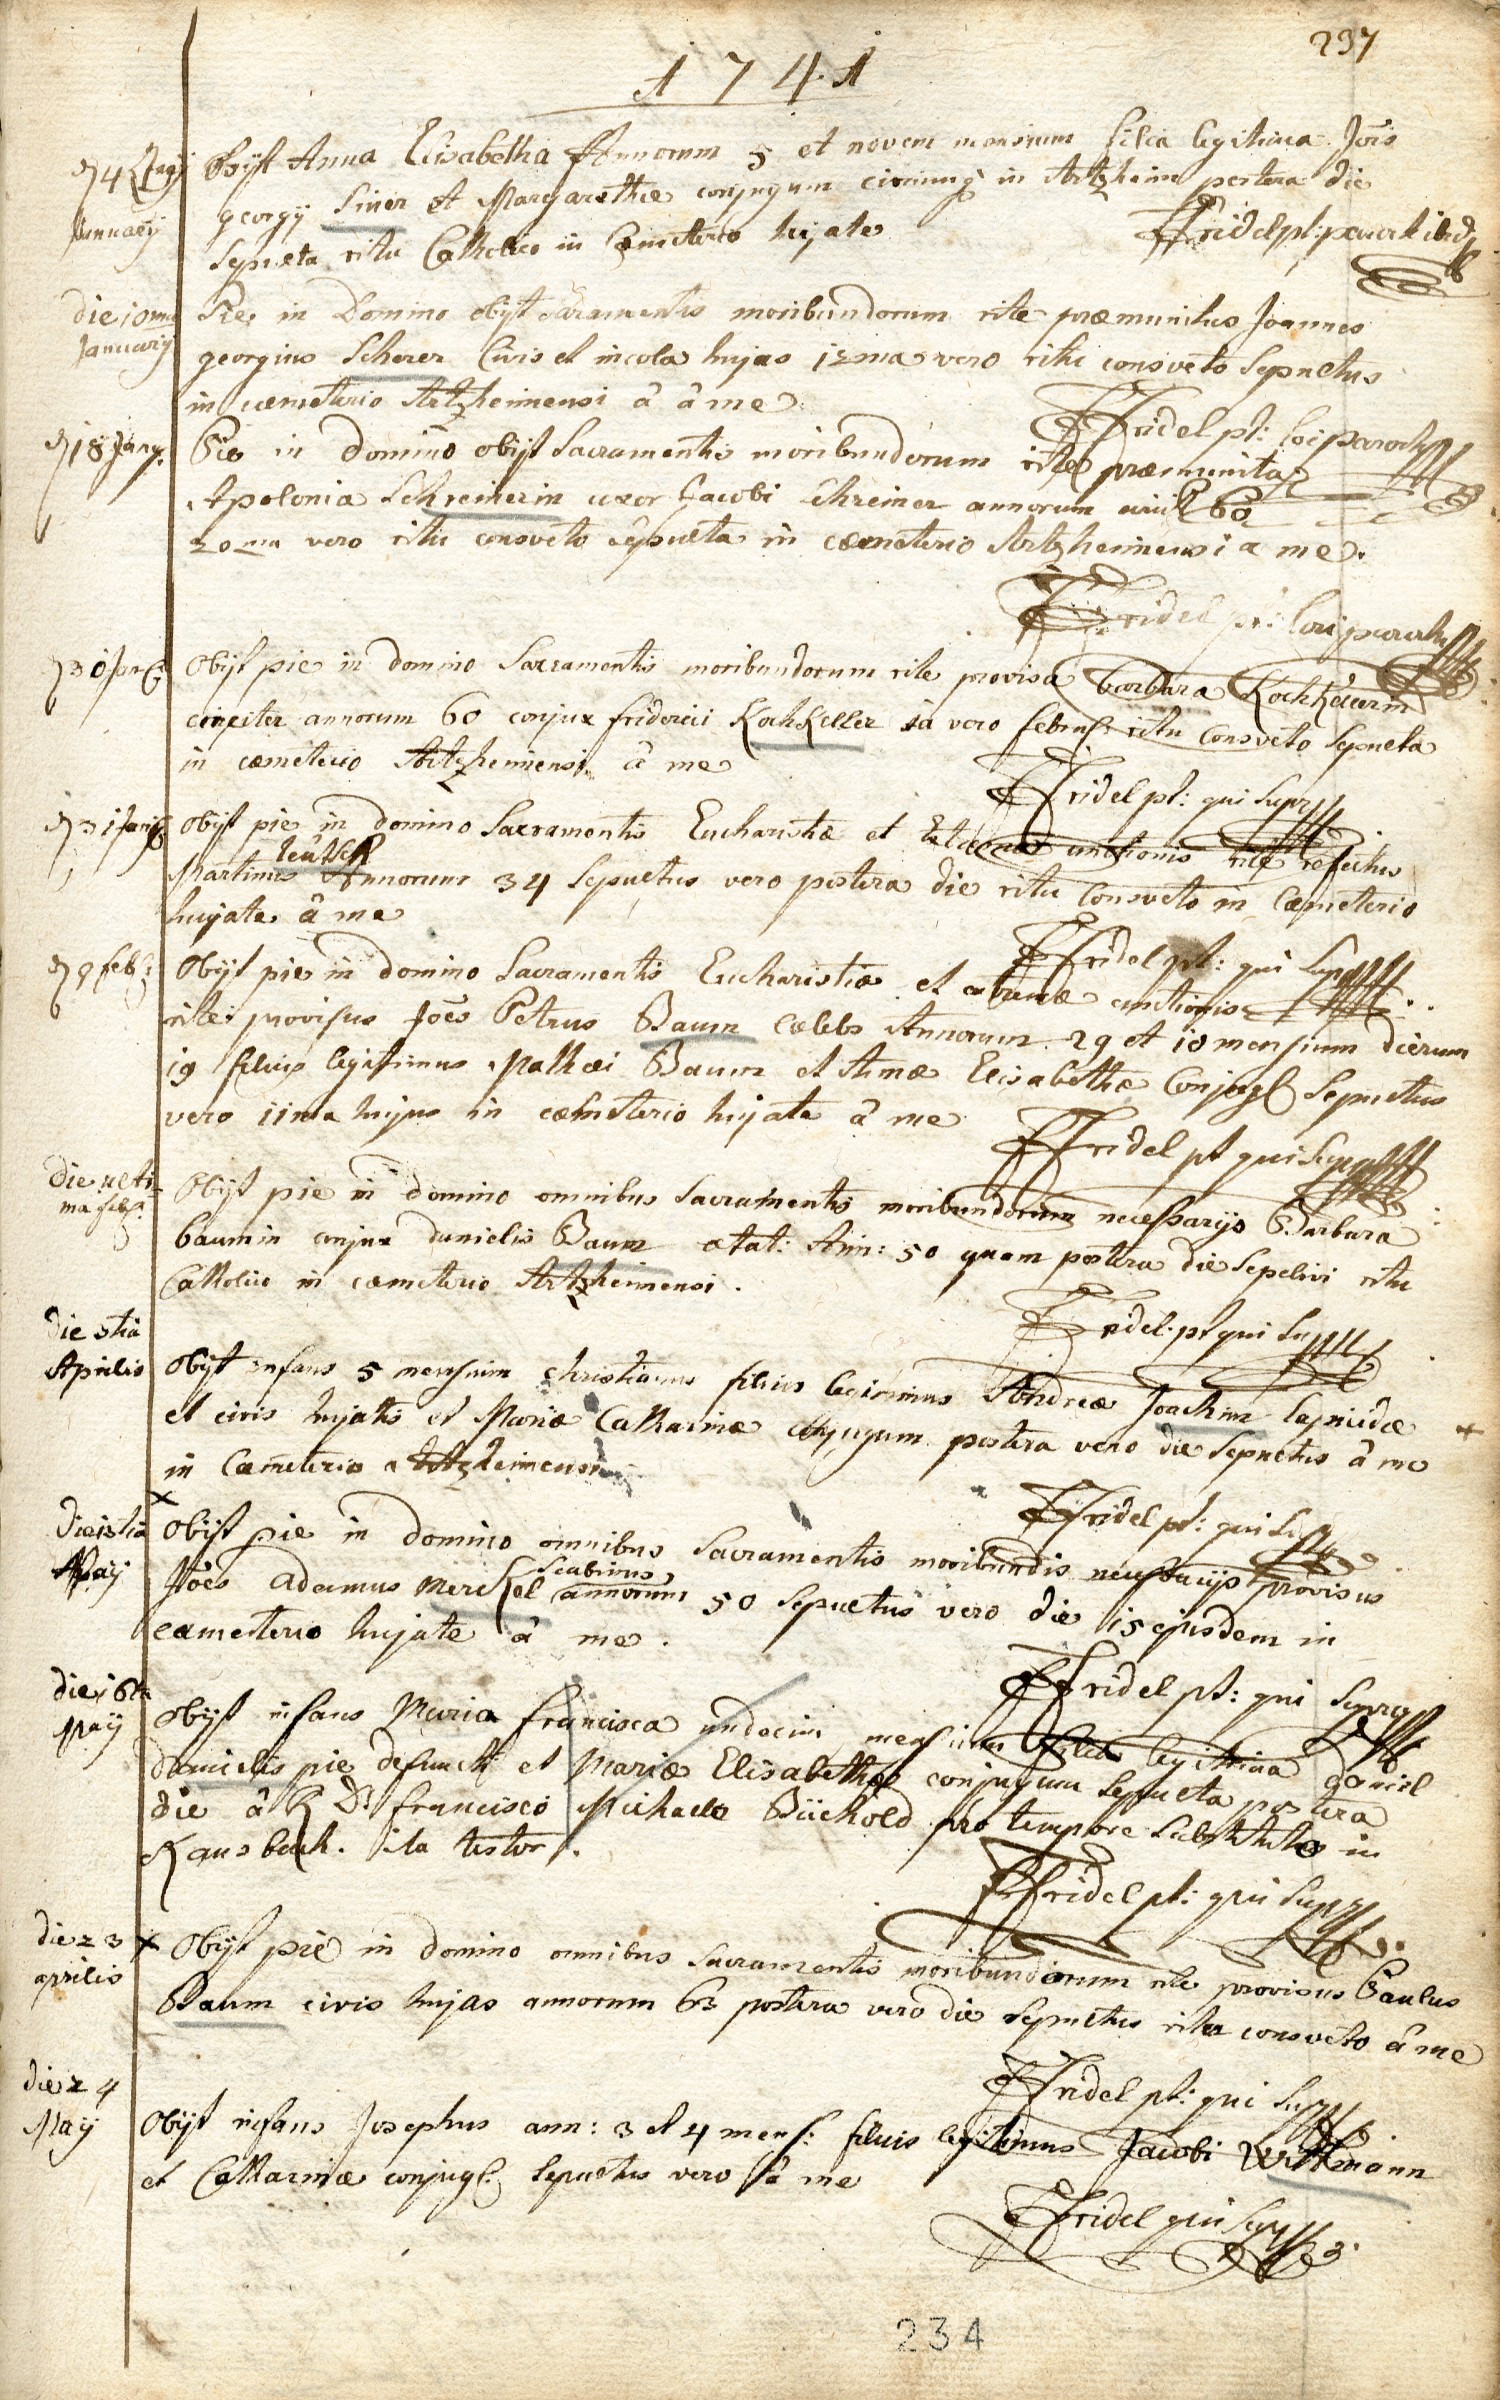 237
1741
d 4 January
Obijt Anna Elisabetha Annorum 5 et novem mensium filia legitima Jois
georgij Siner et Margarethæ conjugum civium in Artzheim postera die
Sepulta ritu Catholico in Cæmeterio hujate
Ffridel pt:
die 10ma
January
Pie in Domino obijt Sacramentis moribundorum rite præmunitus Joannes
georgius Scherer Civis et incola hujas 12ma vero ritu consveto Sepultus
in cæmeterio Artzheimensi â â me
Ffridel pt: loci parochus
d 18 Jany.
Pie in domino obijt Sacramentis moribundorum rite præmunita
Apolonia Schreinerin uxor Jacobi Schreiner annorum circit 60
20ma vero ritu consveto Sepulta in cæmeterio Artzheimensi a me.
Ffridel pt: loci parochus
d 30
Obijt pie in domino Sacramentis moribundorum rite provisa barbara Kochkellerin
circiter annorum 60 conjux friderici Kochkeller 1a vero febru: ritu Consveto Sepulta
in cæmeterio Artzheimensi â me
Ffridel pt: qui supr
d 31 Jany
Obijt pie in domino Sacramentis Eucharistiæ et Extremæ unctionis rite refectus
teutsch
Martinus Annorum 34 Sepultus vero postera die ritu Consveto in Cæmeterio
hujate â me
Ffridel pt: qui supr
d 9 feb:
Obijt pie in domino Sacramentis Eucharistiæ et extremæ unctionis
rite provisus Joes Petrus Baum Cælebs Annorum 29 et 10 mensium dierum
19 filius legitimus Mathæi Baum et Annæ Elisabethæ Conjugl Sepultus
vero 11ma hujus in cæmeterio hujate â me
Ffridel pt qui supr
die ulti-
ma feb:
Obijt pie in domino omnibus Sacramentis moribundorum necessarijs Barbara
baumin conjux danielis Baum ætat: Ann: 50 quam postera die Sepelivi ritu
Catholico in cæmeterio Artzheimensi.
Ffridel: pt qui su
die 5tia
Aprilis
Obijt infans 5 mensium christianus filius legitimus Andreæ Joachim lapicidæ
et civis hujatis et Mariæ Catharinæ conjugum postera vero die Sepultus â me
in Cæmeterio Artzheimensi
Ffridel pt: qui su
die 13tia
May
Obijt pie in domino omnibus Sacramentis moribundis necessarijs provisus
Scabinus
Jões adamus Merckel annorum 50 Sepultus vero die 15 ejusdem in
cæmeterio hujate â me.
Ffridel pt: qui supra
die 16ta
May
Obijt infans Maria francisca undecim mensium filia legitima daniel
danielis pie defuncti et Mariæ Elisabethæ conjugum Sepulta postera
die â R D: francisco Michaele Büchold pro tempore substituto in
Ransbach. ita testor.
Ffridel pt: qui supra
die 23
aprilis
x Obijt pie in domino omnibus Sacramentis moribundorum rite provisus Paulus
Baum civis hujas annorum 63 postera vero die Sepultus ritu consveto â me
Ffridel pt: qui supr
die 24
May
Obijt infans Josephus ann: 3 et 4 mens: filius legitimus Jacobi Wittmann
et Catharinæ conjugl: Sepultus vero â me
Ffridel qui supr
234